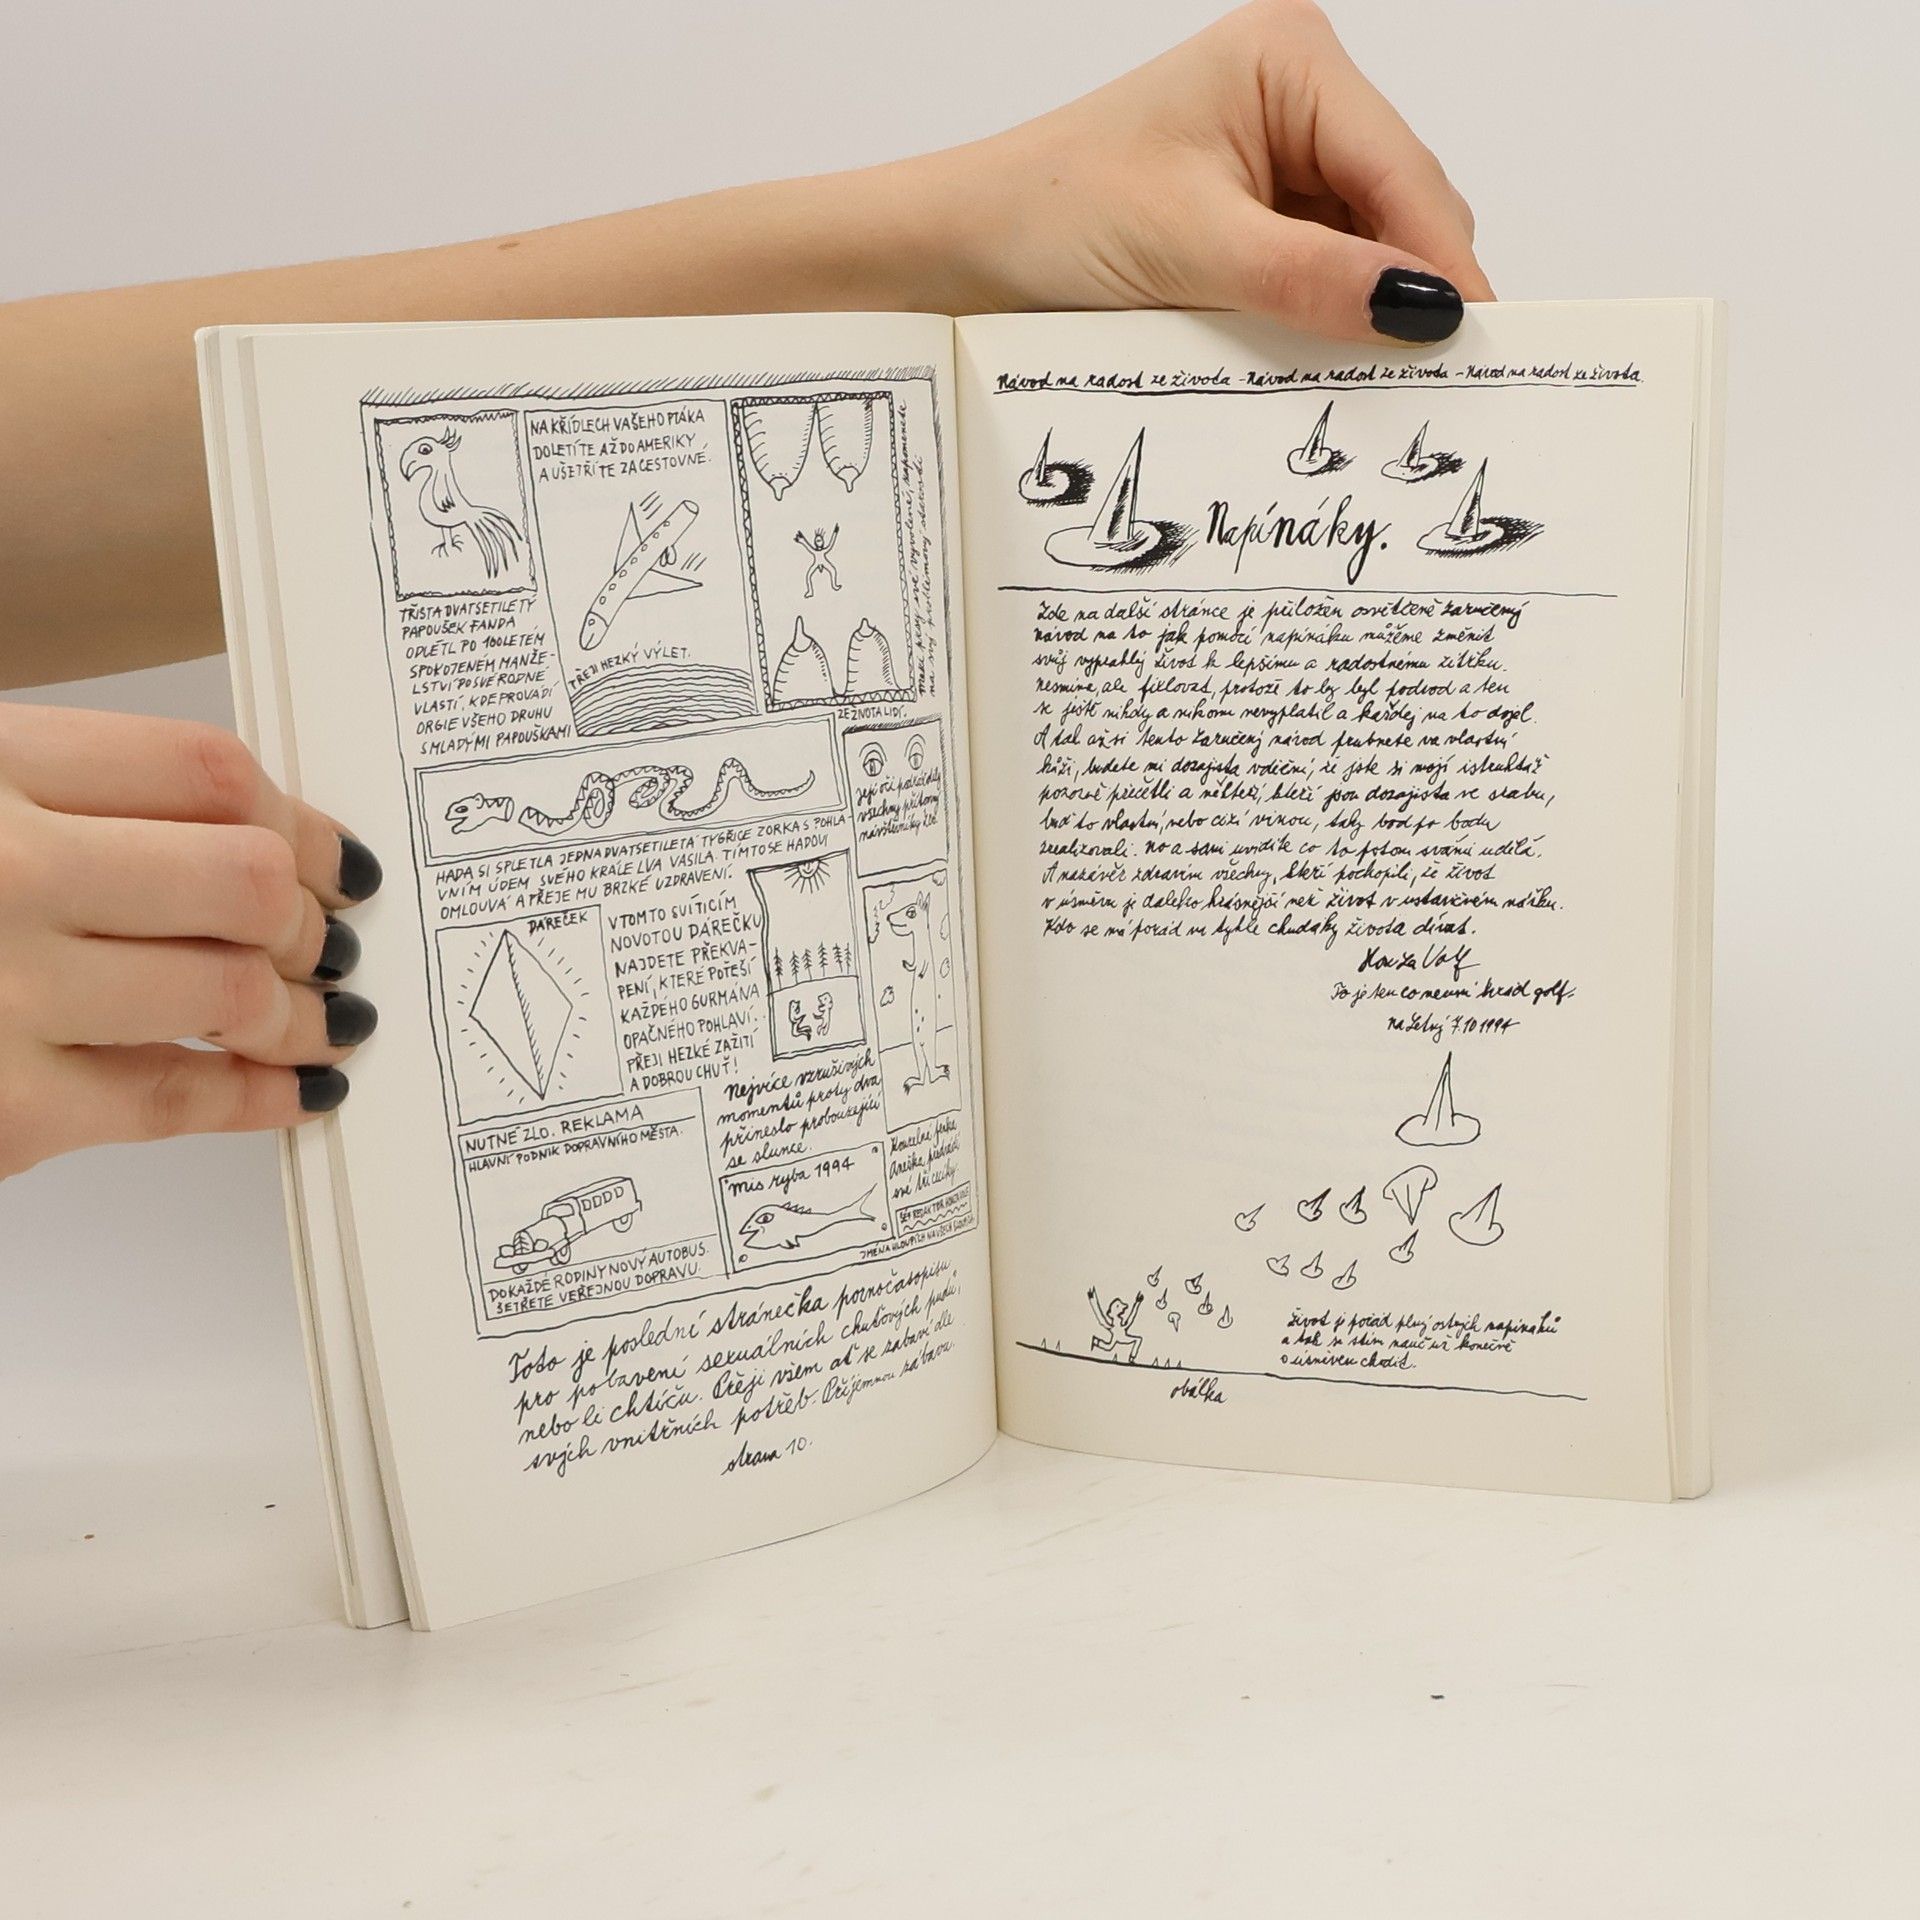 NA KŘÍDLECH VAŠEHO PTÁKA
DOLETÍTE AŽ DO AMERIKY
A UŠETŘÍTE ZA CESTOVNÉ.
TŘISTADVATSETILETÝ
PAPOUŠEK FANDA
ODLÉTL PO 100LETÉM
SPOKOJENÉM MANŽE-
LSTVÍ DO SVÉ RODNÉ
VLASTI, KDE PROVÁDÍ
ORGIE VŠEHO DRUHU
S MLADÝMI PAPOUŠKAMI
PŘEJI HEZKÝ VÝLET.
ZE ŽIVOTA LIDÍ.
Její oči
všechny přítomny
návštěvníky ZOO.
HADA SI SPLETLA JEDNADVATSETILETÁ TYGŘICE ZORKA S POHLA-
VNÍM ÚDEM SVÉHO KRÁLE LVA VASILA. TÍMTO SE HADOVI
OMLOUVÁ A PŘEJE MU BRZKÉ UZDRAVENÍ.
DÁREČEK
V TOMTO SVÍTICÍM
NOVOTOU DÁREČKU
NAJDETE PŘEKVA-
PENÍ, KTERÉ POTĚŠÍ
KAŽDÉHO GURMÁNA
OPAČNÉHO POHLAVÍ.
PŘEJI HEZKÉ ZAŽITÍ
A DOBROU CHUŤ!
Nejvíce vzrušivých
momentů pro ty dva
přineslo probouzející
se slunce.
NUTNÉ ZLO. REKLAMA
HLAVNÍ PODNIK DOPRAVNÍHO MĚSTA.
DO KAŽDÉ RODINY NOVÝ AUTOBUS.
ŠETŘETE VEŘEJNOU DOPRAVU.
Mis ryba 1994
Kouzelná fenka
Anežka předvádí
své tři cecíky.
ŠÉF REDAKTOR HONZA VOLF
JMÉNA HLOUPÝCH NA VŠECH SLOUPÍCH
Toto je poslední stránečka pornočasopisu
pro pobavení sexuálních chuťových pudů,
nebo li chtíču. Přeji všem ať se zabaví dle
svých vnitřních potřeb. Příjemnou zábavu.
strana 10.
Návod na radost ze života - Návod na radost ze života - Návod na radost ze života.
Napínáky.
Zde na další stránce je přiložen osvětčeně zaručený
návod na to jak pomocí napínáku můžeme změnit
svůj vyprahlý život k lepšímu a radostnému zítřku.
Nesmíme, ale fixlovat, protože to by byl podvod a ten
se ještě nikdy a nikomu nevyplatil a každej na to dojel.
A tak až si tento zaručený návod frubnete na vlastní
kůži, budete mi dozajista vděční, že jste si mojí istruktáž
pozorně přečetli a někteří, kteří jsou dozajista ve srabu,
buď to vlastní, nebo cizí vinou, taky bod po bodu
zrealizovali. No a sami uvidíte co to potom s vámi udělá.
A nazávěr zdravím všechny, kteří pochopili, že život
v úsměvu je daleko krásnější než život v ustavičném nářku.
Kdo se má pořád na tyhle chudáky života dívat.
Honza Volf
To je ten co neumí hrád golf.
na Letný 7.10 1994
Život je pořád plný ostrých napínáků
a tak se s tím nauč už konečně
o úsměvu chodit.
obálka